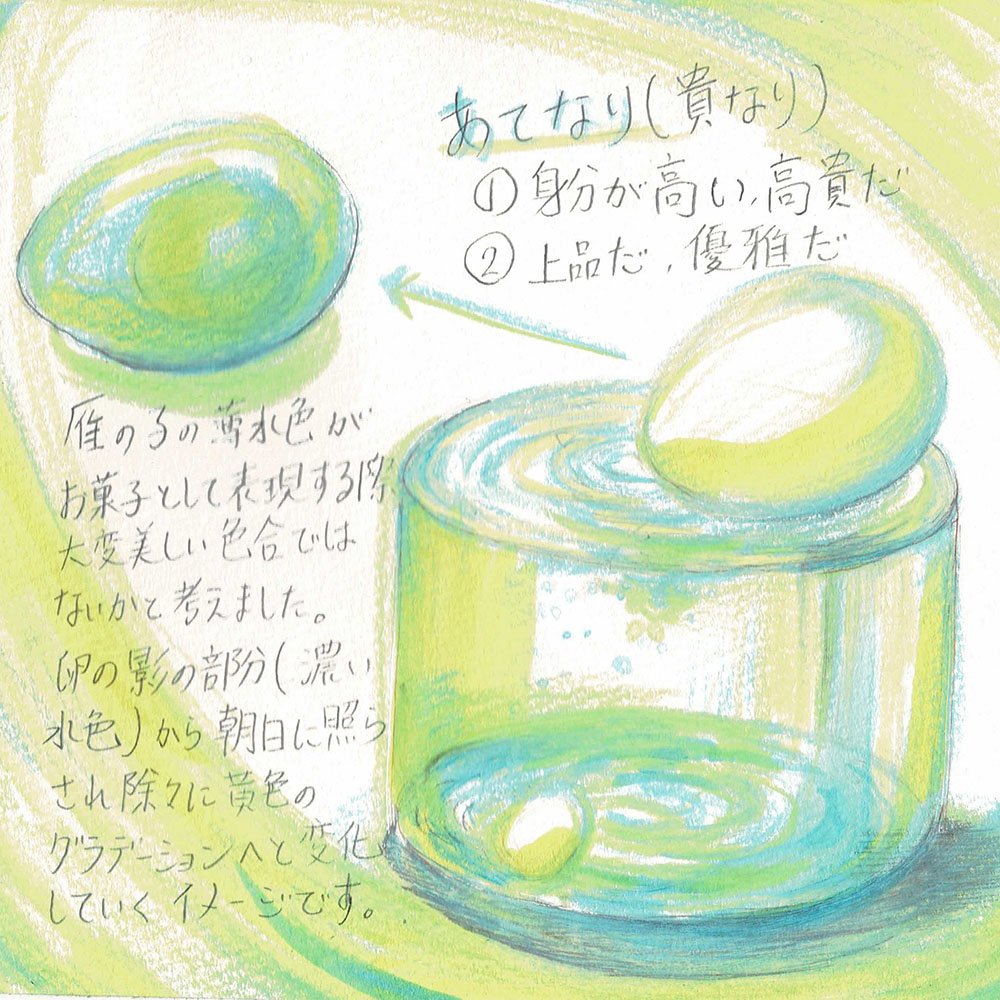 あてなり(貴なり)
① 身分が高い、高貴だ
② 上品だ、優雅だ
雁の子の薄水色が
お菓子として表現する際
大変美しい色合では
ないかと考えました。
卵の影の部分(濃い
水色)から朝日に照ら
され除々に黄色の
グラデーションへと変化
していくイメージです。